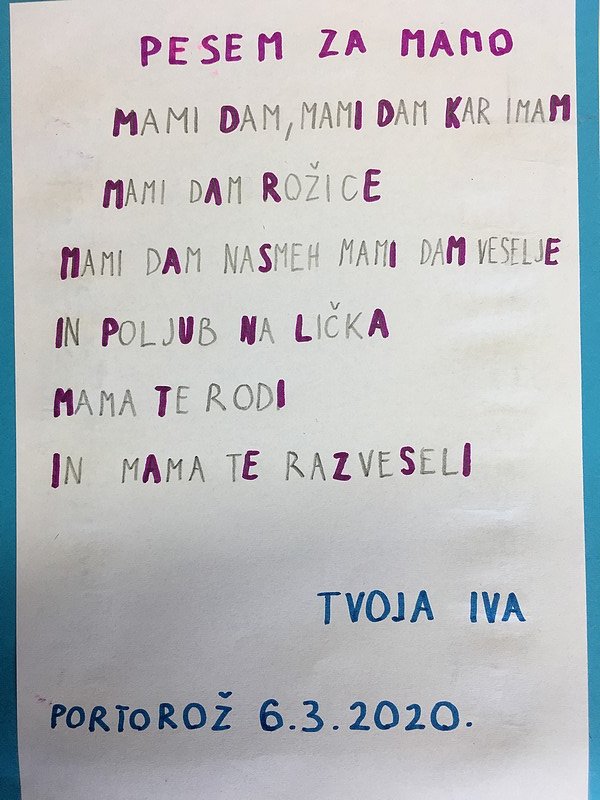 PESEM ZA MAMO
MAMI DAM, MAMI DAM KAR IMAM
MAMI DAM ROŽICE
MAMI DAM NASMEH MAMI DAM VESELJE
IN POLJUB NA LIČKA
MAMA TE RODI
IN MAMA TE RAZVESELI
TVOJA IVA
PORTOROŽ 6.3.2020.